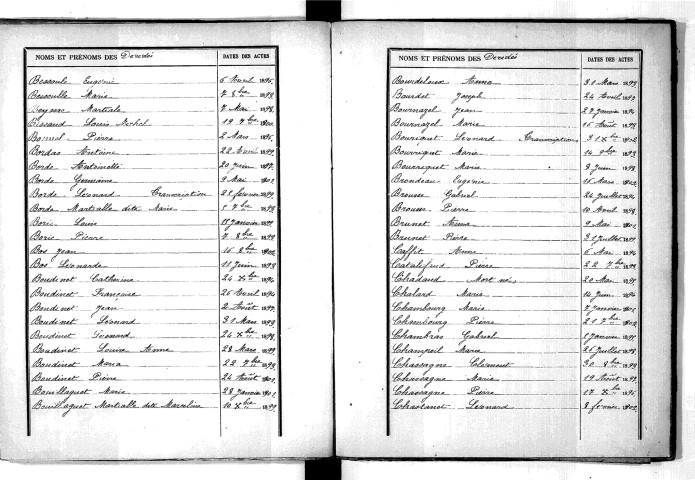 NOMS ET PRÉNOMS DES Décédés DATES DES ACTES
Bessoule Eugénie 6 Avril 1895
Bessoulle Marie 7 8bre 1899
Martiale 7 Mai 1898
Bissaud Louis Michel 19 7bre 1900
Bonnel Pierre 2 Mars 1895
Bordas Antoine 22 Avril 1899
Borde Antoinette 20 Juin 1897
Borde Germaine 9 Mai 1902
Borde Léonard Transcription 28 février 1899
Borde Martialle dite Marie 7bre 1898
Borie Louis 11 Janvier 1899
Borie Pierre 7 8bre 1899
Bos Jean 16 8bre 1902
Bos Léonarde 11 Juin 1898
Boudenet Catherine 24 Xbre 1894
Boudinet Françoise 26 Avril 1894
Boudenet Jean 2 Août 1899
Boudenet Léonard 31 Mars 1899
Boudinet Léonard 24 Xbre 1898
Boudinet Louise Anna 28 Mars 1899
Boudinet Maria 22 7bre 1898
Boudinet Pierre 24 Août 1902
Bouillaguet Marie 28 Janvier 1902
Bouillaguet Martialle dite Marceline 10 Xbre 1899
NOMS ET PRÉNOMS DES Décédés DATES DES ACTES
Bourdeloux Anna 31 Mars 1899
Bourdet Joseph 24 Avril 1893
Bournazel Jean 27 Janvier 1894
Bournazel Marie 16 Août 1898
Bourriquet Léonard Transcription 31 Xbre 1902
Bourriquet Marie 14 9bre 1893
Bourriquet Marie 8 Juin 1898
Brondeau Eugénie 16 Mars 1902
Brousse Gabriel 24 Juillet 1894
Brousse Pierre 10 Avril 1898
Brunet Anna 9 Mai 1901
Brunet Pierre 31 Juillet 1899
Caffit Anne 6 Mai 1894
Catalifaud Pierre 22 7bre 1899
Chadaud Mort né 20 Mai 1895
Chalard Marie 14 Juin 1894
Chambourg Marie 7 Janvier 1902
Chambourg Pierre 21 7bre 1902
Chambras Gabriel Janvier 1895
Champeil Marie 26 Juillet 1898
Chassagne Clément 30 8bre 1893
Chassagne Marie 19 Août 1899
Chassagne Pierre 17 Xbre 1895
Chastanet Léonard 8 février 1902